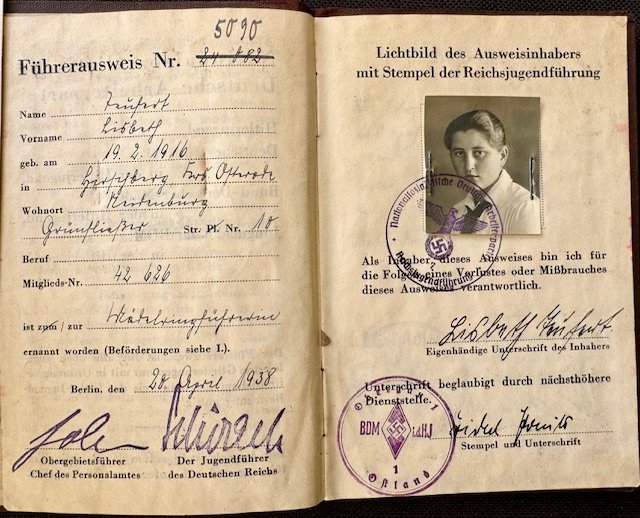 5090
Führerausweis Nr. 24 082
Name Teufert
Vorname Lisbeth
geb. am 19. 2. 1916
in Hirschberg Krs Osterode
Wohnort Neidenburg
Grünfließer Str. Pl. Nr. 18
Beruf
Mitglieds-Nr. 42 626
ist zum / zur Mädelringführerin
ernannt worden (Beförderungen siehe I.).
Berlin, den 20. April 1938
Obergebietsführer
Chef des Personalamtes
Der Jugendführer
des Deutschen Reichs
Lichtbild des Ausweisinhabers
mit Stempel der Reichsjugendführung
Nationalsozialistische Deutsche Arbeiterpartei
Reichsjugendführung
Als Inhaber dieses Ausweises bin ich für
die Folgen eines Verlustes oder Mißbrauches
dieses Ausweises verantwortlich.
Lisbeth Teufert
Eigenhändige Unterschrift des Inhabers
Unterschrift beglaubigt durch nächsthöhere
Dienststelle.
Stempel und Unterschrift
BDM i.d.HJ
1
Ostland